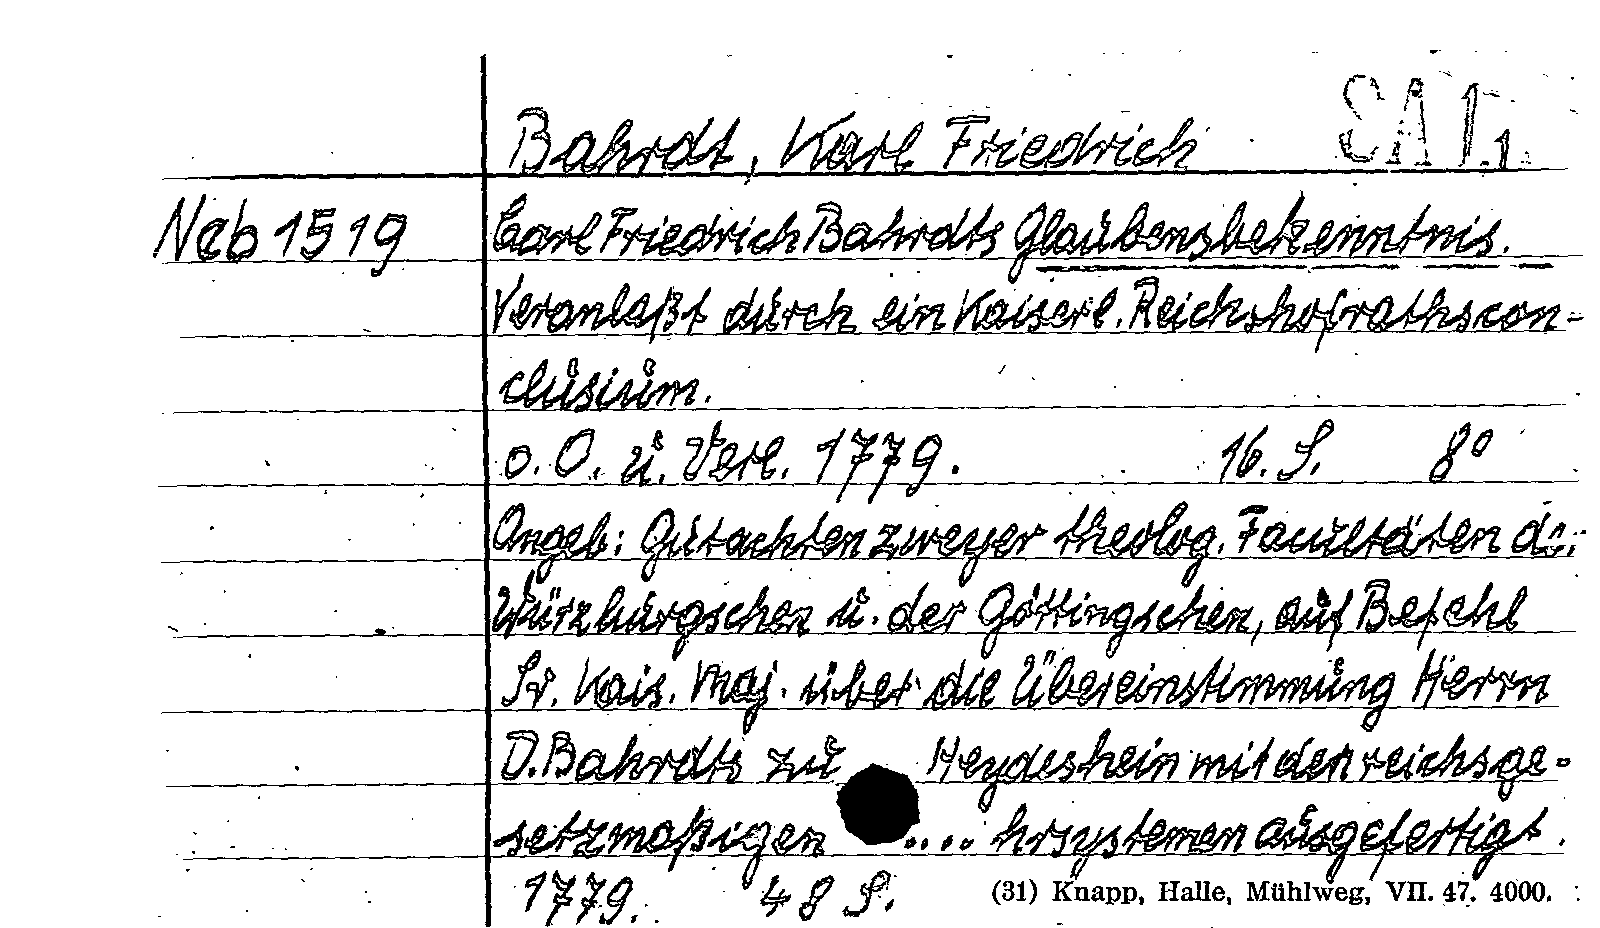 Bahrdt, Karl Friedrich
Neb 1519
Carl Friedrich Bahrdts Glaubensbekenntnis.
Veranlaßt durch ein Kaiserl. Reichshofrathscon-
clusium.
o. O. u. Verl. 1779. 16. S. 8°
Angeb: Gutachten zweyer theolog. Facultäten
Würzburgschen u. der Göttingschen, auf Befehl
Sr. Kais. Maj. über die Übereinstimmung Herrn
D. Bahrdts zu Heydeshein mit den reichsge-
setzmäßigen .... hrsystemen ausgefertigt.
1779. 48 S. (31) Knapp, Halle, Mühlweg, VII. 47. 4000.